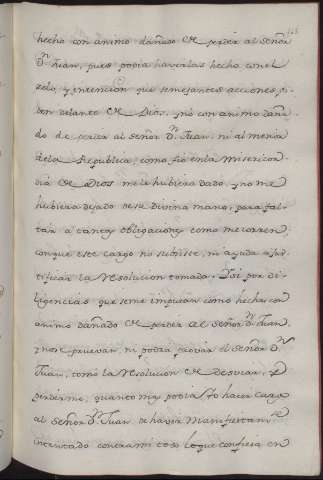 hecho con animo dañado de perder al señor
Dn Juan, pues podia haverlas hecho con el
zelo, y intencion que semejantes acciones pi-
den delante de Dios, y no con animo daña-
do de perder al señor Dn Juan, ni al menor
de la Republica, como fio en la misericor-
dia de Dios me le hubiera dado, y no me
hubiera dejado de su Divina mano, para fal-
tar a tantas obligaciones como me corren,
conque este cargo no subsiste, ni ayuda a jus-
tificar la resolucion tomada. Y si por di-
ligencias que se me imputan como hechas con
animo dañado de perder al señor Dn Juan,
y no se pruevan, ni podra provar el señor Dn
Juan, tomò la resolucion de desviar, y
perderme, quanto mas podia yo hacer cargo
al señor Dn Juan de haver manifiestamte
intentado contra mi todo lo que confiesa en